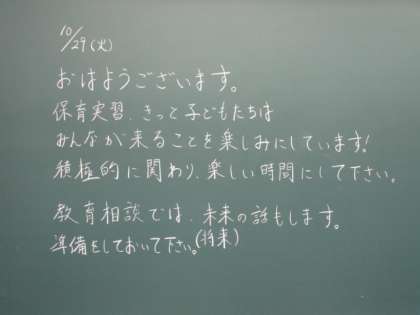 10/29(火)
おはようございます。
保育実習、きっと子どもたちは
みんなが来ることを楽しみにしています!
積極的に関わり、楽しい時間にして下さい。
教育相談では、未来の話もします。
準備をしておいて下さい。(将来)